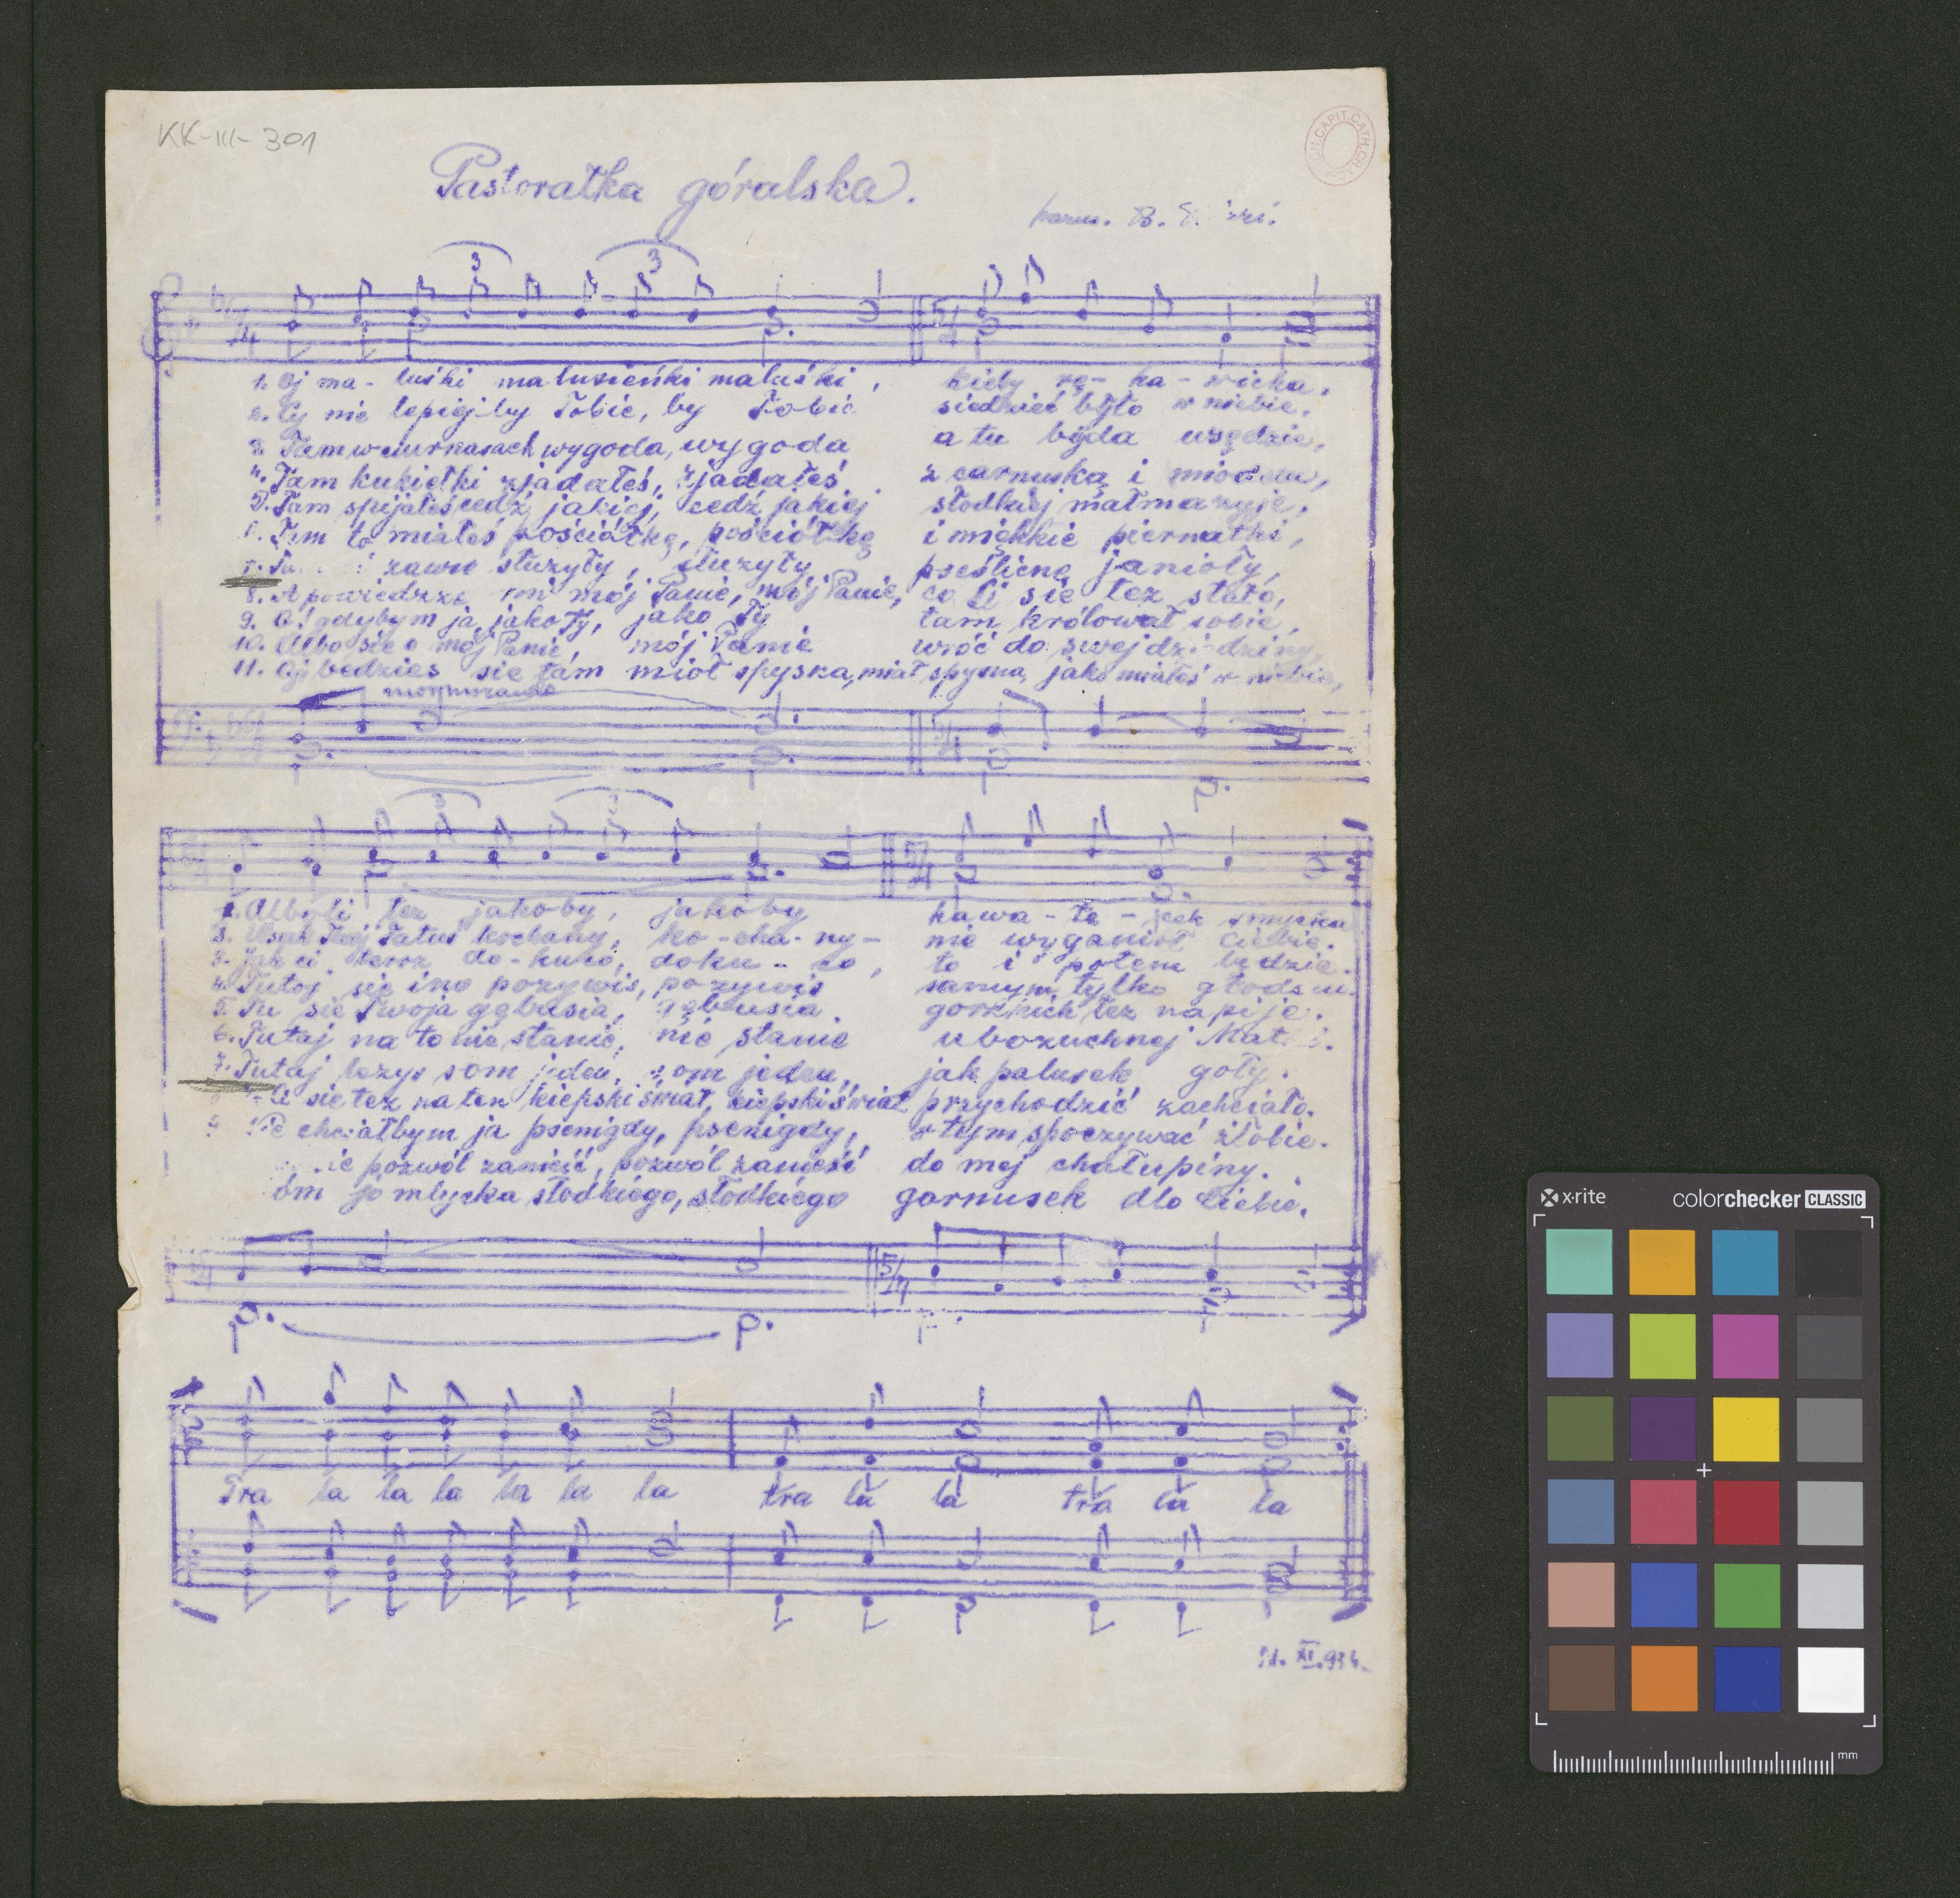 KK-III-301
Pastorałka góralska.
harm. B.
3 3
1. Oj ma - luśki malusieńki maluśki, kieby rę - ka - wicka,
2. Cy nie lepiej by Tobie, by Tobie siedzieć było w niebie,
3. Tam wciurnasach wygoda, wygoda a tu bijda wsędzie,
4. Tam kukiełki zjadałeś, zjadałeś z carnuską i miodem,
5. Tam spijałeś cedź jakiej, cedź jakiej słodkiej małmazyje,
6. Tam to miałeś pościółkę, pościółkę i miękkie piernatki,
7. zawse słuzyły, słuzyły prześlicne janioły,
8. A powiedzze mi mój Panie, mój Panie, co Ci sie tez stało,
9. O! gdybym ja, jako Ty, jako Ty tam królował sobie,
10. Albo sie o mój Panie, mój Panie wróć do swej dziedziny,
11. Oj bedzies sie tam miał spyska, miał spyska, jako miałeś w niebie,
mormorando
5/4
3 3
5/4
1. Alboli tez jakoby, jakoby kawa - łe - cek smycka
2. Wsak Twój Tatuś kochany, ko - cha - ny - nie wyganioł Ciebie.
3. Jak ci teroz do - kuco, doku - co, to i potem bedzie.
4. Tutoj sie ino pozywis, pozywis samym tylko głodem.
5. Tu sie Twoja gębusia, gębusia gorzkich tez napije.
6. Tutaj na to nie stanie, nie stanie ubozuchnej
7. Tutaj lezys som jeden, som jeden, jak palusek goły.
sie tez na ten kiepski świat, kiepski świat przychodzić zachciało.
chciałbym ja psenigdy, psenigdy, w tym spoczywać żłobie.
pozwól zanieść, pozwól zanieść do mej chałupiny.
jo mlycka słodkiego, słodkiego garnusek dlo Ciebie.
5/4
Tra la la la la la la tra la la tra la la
XI.934.
x-rite colorchecker CLASSIC
mm